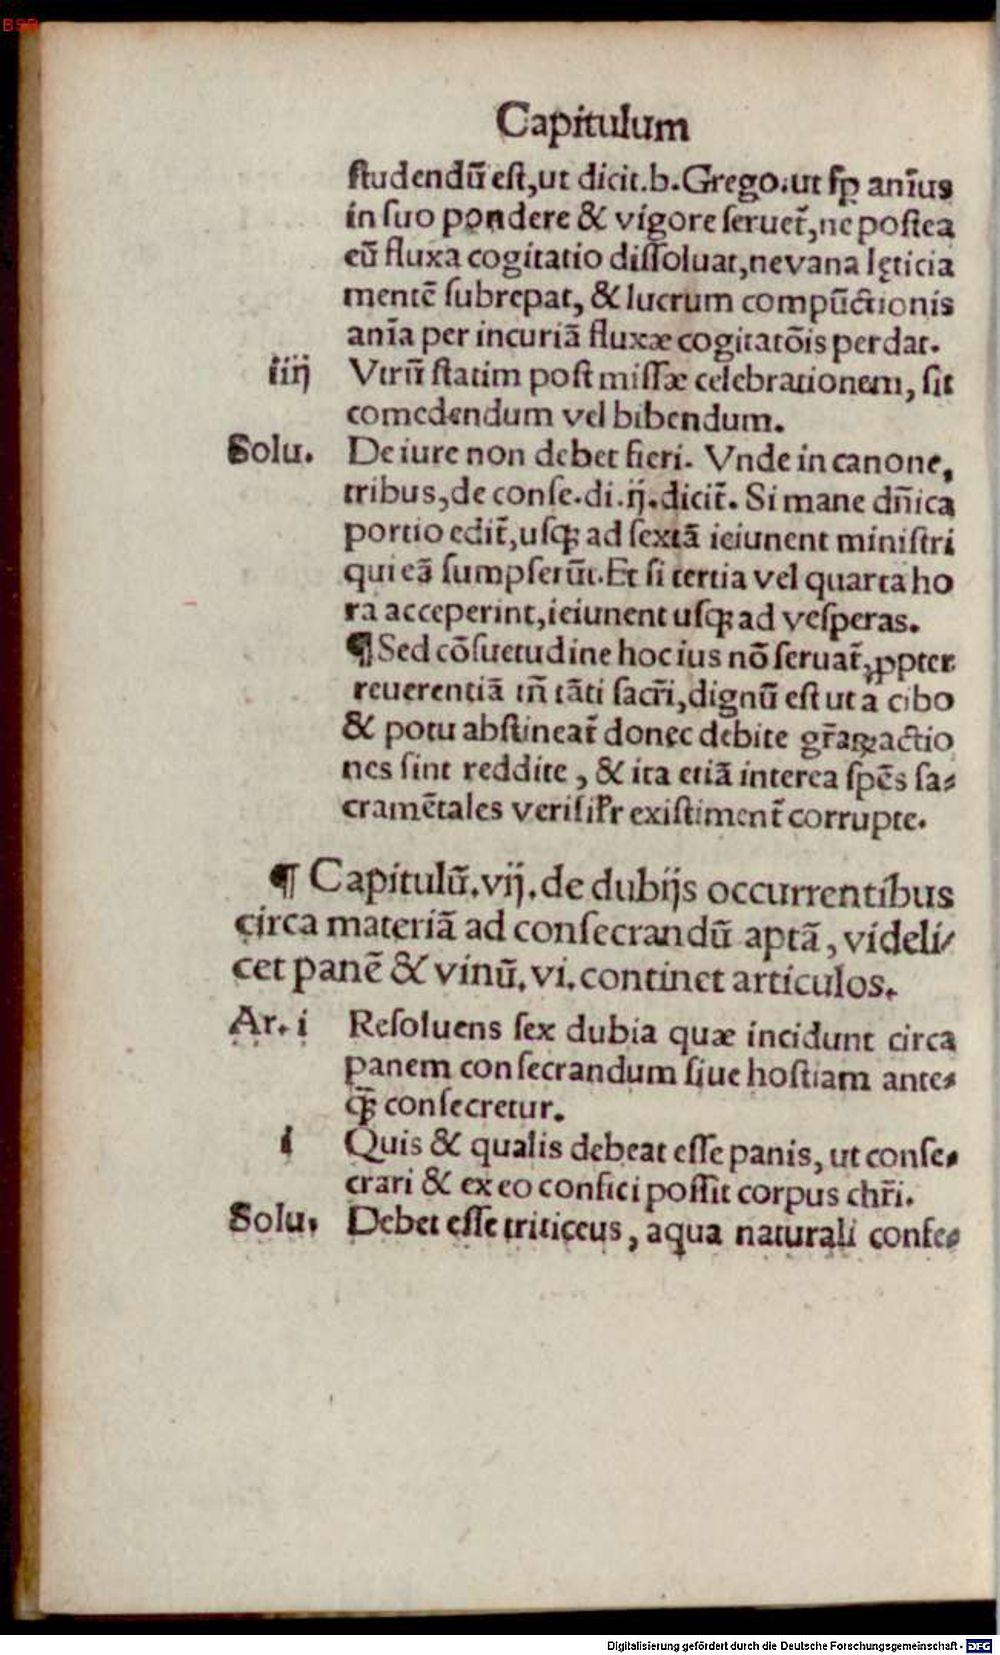 BSB
Capitulum
ſtudendū eſt,ut dicit.b.Grego.ut ſꝑ anīus
in ſuo pondere & vigore ſeruet̃,ne poſtea
eū fluxa cogitatio diſſoluat,ne vana lęticia
mentē ſubrepat, & lucrum compūctionis
anīa per incuriā fluxæ cogitatōis perdat.
iiij Vtrū ſtatim poſt miſſæ celebrationem, ſit
comedendum vel bibendum.
Solu. De iure non debet fieri. Vnde in canone,
tribus,de conſe.di.ij.dicit̃. Si mane dñica
portio edit̃,uſqꝫ ad ſextā ieiunent miniſtri
qui eā ſumpſerūt.Et ſi tertia vel quarta ho
ra acceperint,ieiunent uſqꝫ ad veſperas.
¶ Sed cōſuetudine hoc ius nō ſeruat̃,ꝓpter
reuerentiā tñ tāti ſacr̃i,dignū eſt ut a cibo
& potu abſtineat̃ donec debite gr̃aꝝ actio
nes ſint reddite, & ita etiā interea ſpēs ſa⸗
cramētales veriſil̃r exiſtiment̃ corrupte.
¶ Capitulū.vij.de dubijs occurrentibus
circa materiā ad conſecrandū aptā, videli⸗
cet panē & vinū.vi.continet articulos.
Ar. i Reſoluens ſex dubia quæ incidunt circa
panem conſecrandum ſiue hoſtiam ante⸗
qꝫ̃ conſecretur.
i Quis & qualis debeat eſſe panis, ut conſe⸗
crari & ex eo confici poſſit corpus chr̃i.
Solu. Debet eſſe triticeus, aqua naturali confe⸗
Digitalisierung gefördert durch die Deutsche Forschungsgemeinschaft - DFG